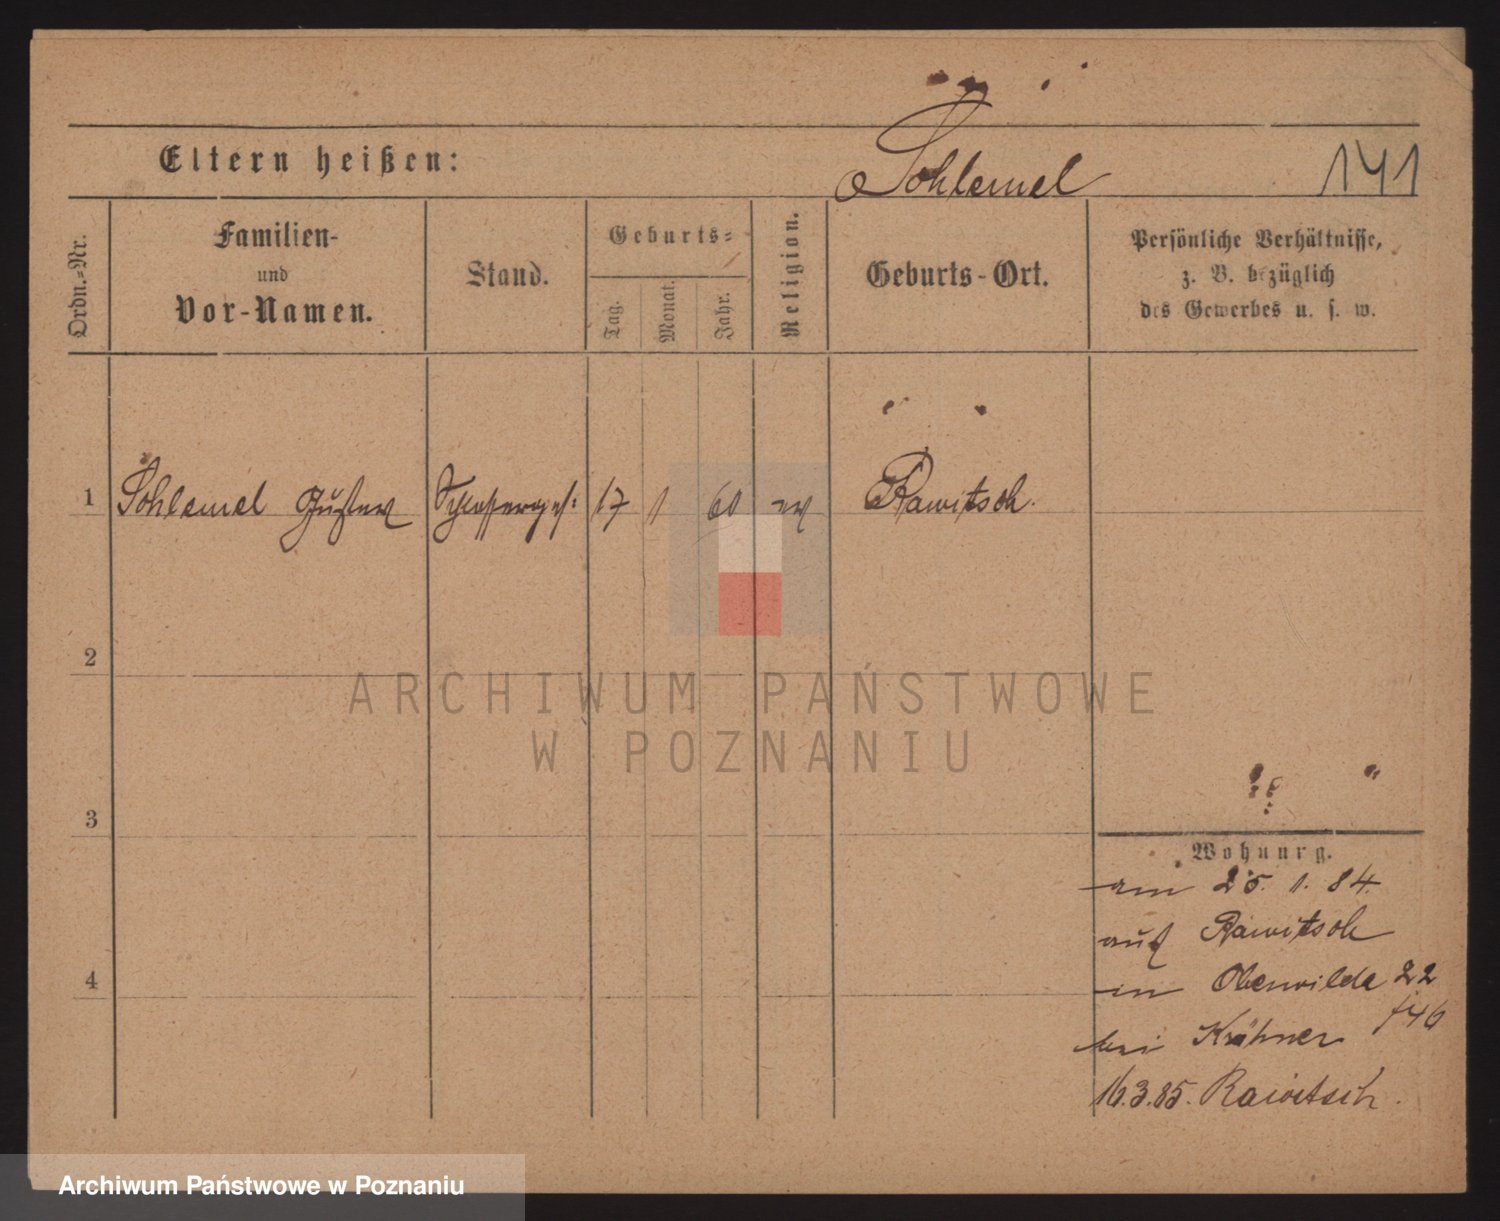 Eltern heißen:
Schlemel
141
Ordn.-Nr.
Familien-
und
Vor-Namen.
Stand.
Geburts-
Tag.
Monat.
Jahr.
Religion.
Geburts-Ort.
Persönliche Verhältnisse,
z. B. bezüglich
des Gewerbes u. s. w.
1 Schlemel Gustav Schlosserges: 17 1 60 ev Rawitsch.
2
3
4
Wohnung.
am 25. 1. 84.
aus Rawitsch
in Oberwilda 22
bei Krähner
16.3.85. Rawitsch.
ARCHIWUM PAŃSTWOWE
W POZNANIU
Archiwum Państwowe w Poznaniu